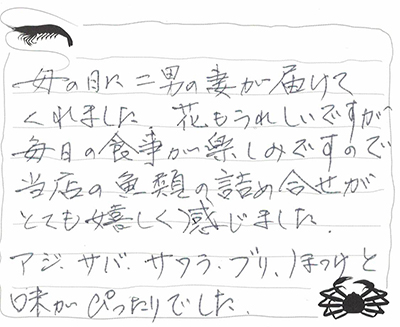 母の日に二男の妻が届けて
くれました。花もうれしいですが
毎日の食事が楽しみですので
当店の魚類の詰め合せが
とても嬉しく感じました。
アジ、サバ、サワラ、ブリ、ほっけと
味がぴったりでした。